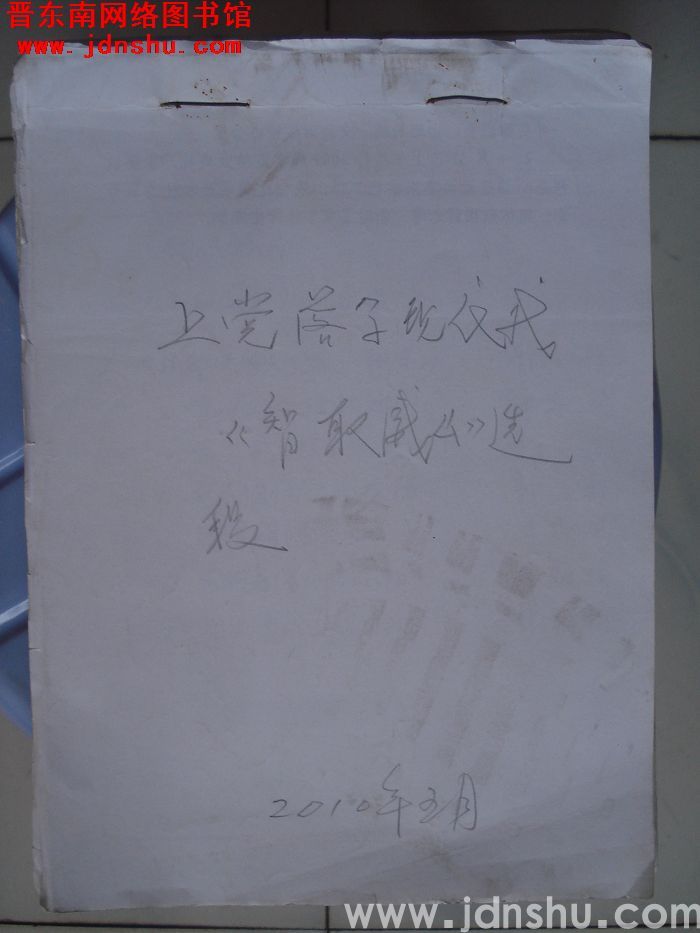 晋东南网络图书馆
www.jdnshu.com
上党落子现代戏
《智取威山》选
段
2010年五月
www.jdnshu.com